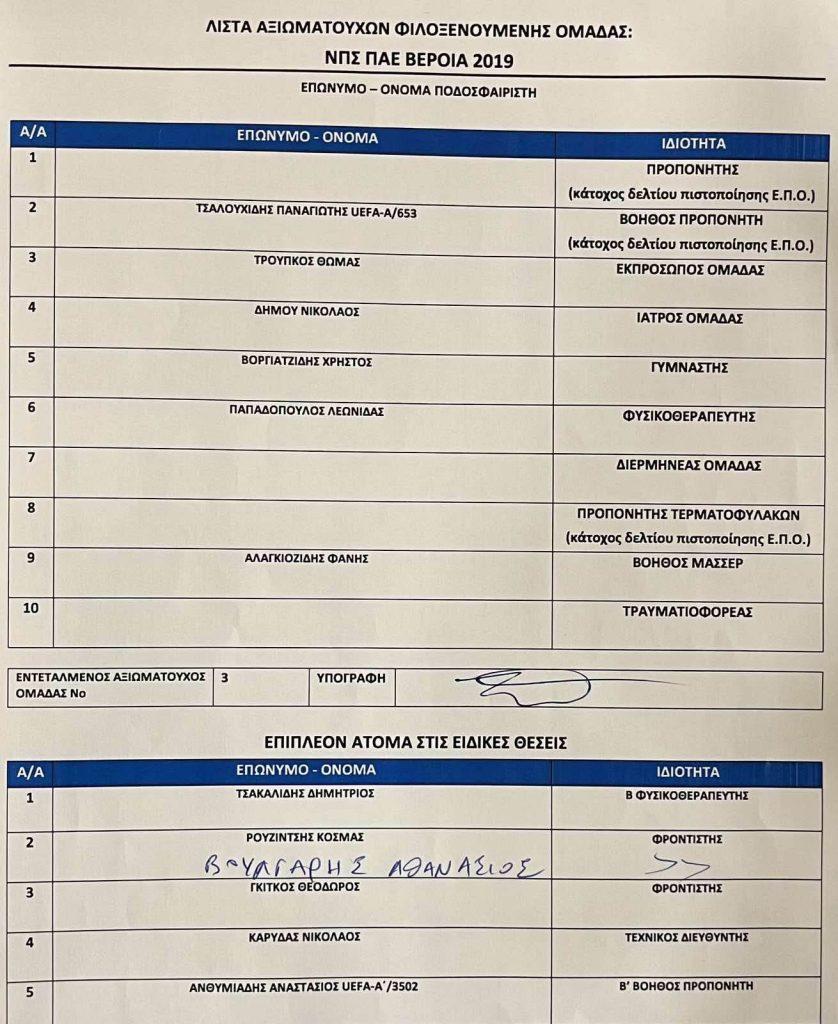 ΛΙΣΤΑ ΑΞΙΩΜΑΤΟΥΧΩΝ ΦΙΛΟΞΕΝΟΥΜΕΝΗΣ ΟΜΑΔΑΣ:
ΝΠΣ ΠΑΕ ΒΕΡΟΙΑ 2019
ΕΠΩΝΥΜΟ – ΟΝΟΜΑ ΠΟΔΟΣΦΑΙΡΙΣΤΗ
Α/Α ΕΠΩΝΥΜΟ - ΟΝΟΜΑ ΙΔΙΟΤΗΤΑ
1 ΠΡΟΠΟΝΗΤΗΣ
(κάτοχος δελτίου πιστοποίησης Ε.Π.Ο.)
2 ΤΣΑΛΟΥΧΙΔΗΣ ΠΑΝΑΓΙΩΤΗΣ UEFA-A/653 ΒΟΗΘΟΣ ΠΡΟΠΟΝΗΤΗ
(κάτοχος δελτίου πιστοποίησης Ε.Π.Ο.)
3 ΤΡΟΥΠΚΟΣ ΘΩΜΑΣ ΕΚΠΡΟΣΩΠΟΣ ΟΜΑΔΑΣ
4 ΔΗΜΟΥ ΝΙΚΟΛΑΟΣ ΙΑΤΡΟΣ ΟΜΑΔΑΣ
5 ΒΟΡΓΙΑΤΖΙΔΗΣ ΧΡΗΣΤΟΣ ΓΥΜΝΑΣΤΗΣ
6 ΠΑΠΑΔΟΠΟΥΛΟΣ ΛΕΩΝΙΔΑΣ ΦΥΣΙΚΟΘΕΡΑΠΕΥΤΗΣ
7 ΔΙΕΡΜΗΝΕΑΣ ΟΜΑΔΑΣ
8 ΠΡΟΠΟΝΗΤΗΣ ΤΕΡΜΑΤΟΦΥΛΑΚΩΝ
(κάτοχος δελτίου πιστοποίησης Ε.Π.Ο.)
9 ΑΛΑΓΚΙΟΖΙΔΗΣ ΦΑΝΗΣ ΒΟΗΘΟΣ ΜΑΣΣΕΡ
10 ΤΡΑΥΜΑΤΙΟΦΟΡΕΑΣ
ΕΝΤΕΤΑΛΜΕΝΟΣ ΑΞΙΩΜΑΤΟΥΧΟΣ 3 ΥΠΟΓΡΑΦΗ
ΟΜΑΔΑΣ Νο
ΕΠΙΠΛΕΟΝ ΑΤΟΜΑ ΣΤΙΣ ΕΙΔΙΚΕΣ ΘΕΣΕΙΣ
Α/Α ΕΠΩΝΥΜΟ - ΟΝΟΜΑ ΙΔΙΟΤΗΤΑ
1 ΤΣΑΚΑΛΙΔΗΣ ΔΗΜΗΤΡΙΟΣ Β ΦΥΣΙΚΟΘΕΡΑΠΕΥΤΗΣ
2 ΡΟΥΖΙΝΤΣΗΣ ΚΟΣΜΑΣ ΦΡΟΝΤΙΣΤΗΣ
ΒΟΥΛΓΑΡΗΣ ΑΘΑΝΑΣΙΟΣ >>
3 ΓΚΙΤΚΟΣ ΘΕΟΔΩΡΟΣ ΦΡΟΝΤΙΣΤΗΣ
4 ΚΑΡΥΔΑΣ ΝΙΚΟΛΑΟΣ ΤΕΧΝΙΚΟΣ ΔΙΕΥΘΥΝΤΗΣ
5 ΑΝΘΥΜΙΑΔΗΣ ΑΝΑΣΤΑΣΙΟΣ UEFA-A΄/3502 Β’ ΒΟΗΘΟΣ ΠΡΟΠΟΝΗΤΗ